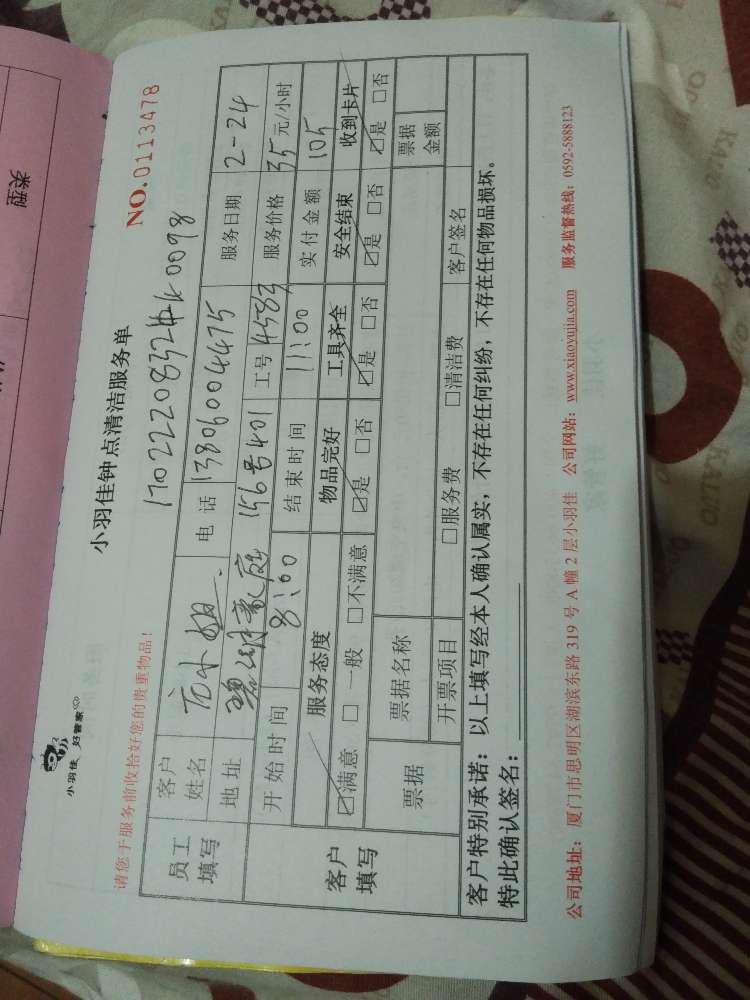 类型
小羽佳 好管家
小羽佳钟点清洁服务单
请您于服务前收拾好您的贵重物品！
NO.0113478
员工填写
客户姓名 小姐 电话 13806004475 服务日期 2-24
地址 碧湖豪庭 156号401 工号 4583 服务价格 35元/小时
开始时间 8:00 结束时间 11:00 实付金额 105
客户填写
服务态度 物品完好 工具齐全 安全结束 收到卡片
☑满意 □一般 □不满意 ☑是 □否 ☑是 □否 ☑是 □否 ☑是 □否
票据 票据名称 票据金额
开票项目 □服务费 □清洁费 客户签名
客户特别承诺：以上填写经本人确认属实，不存在任何纠纷，不存在任何物品损坏。
特此确认签名：
公司地址：厦门市思明区湖滨东路 319 号 A 幢 2 层小羽佳 公司网站：www.xiaoyujia.com 服务监督热线：0592-5888123